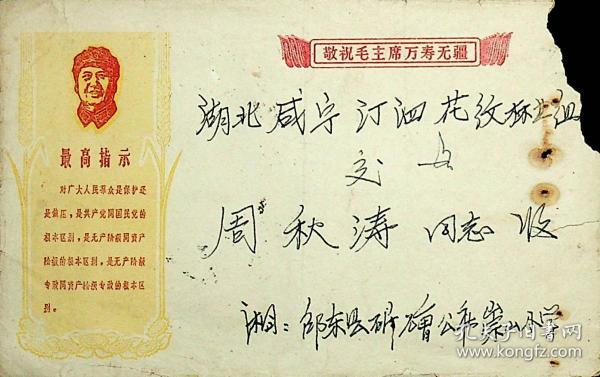 敬祝毛主席万寿无疆
最高指示
对广大人民群众是保护还
是镇压，是共产党同国民党的
根本区别，是无产阶级同资产
阶级的根本区别，是无产阶级
专政同资产阶级专政的根本区
别。
湖北咸宁汀泗花纹林业组
交
周秋涛同志收
邵东县 公社崇山小学
孔夫子旧书网
www.kongfz.com